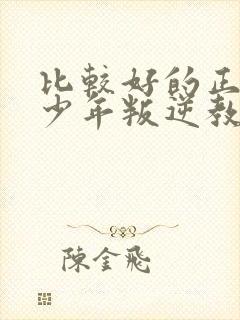 比較好的正
少年叛逆教
陳金飛